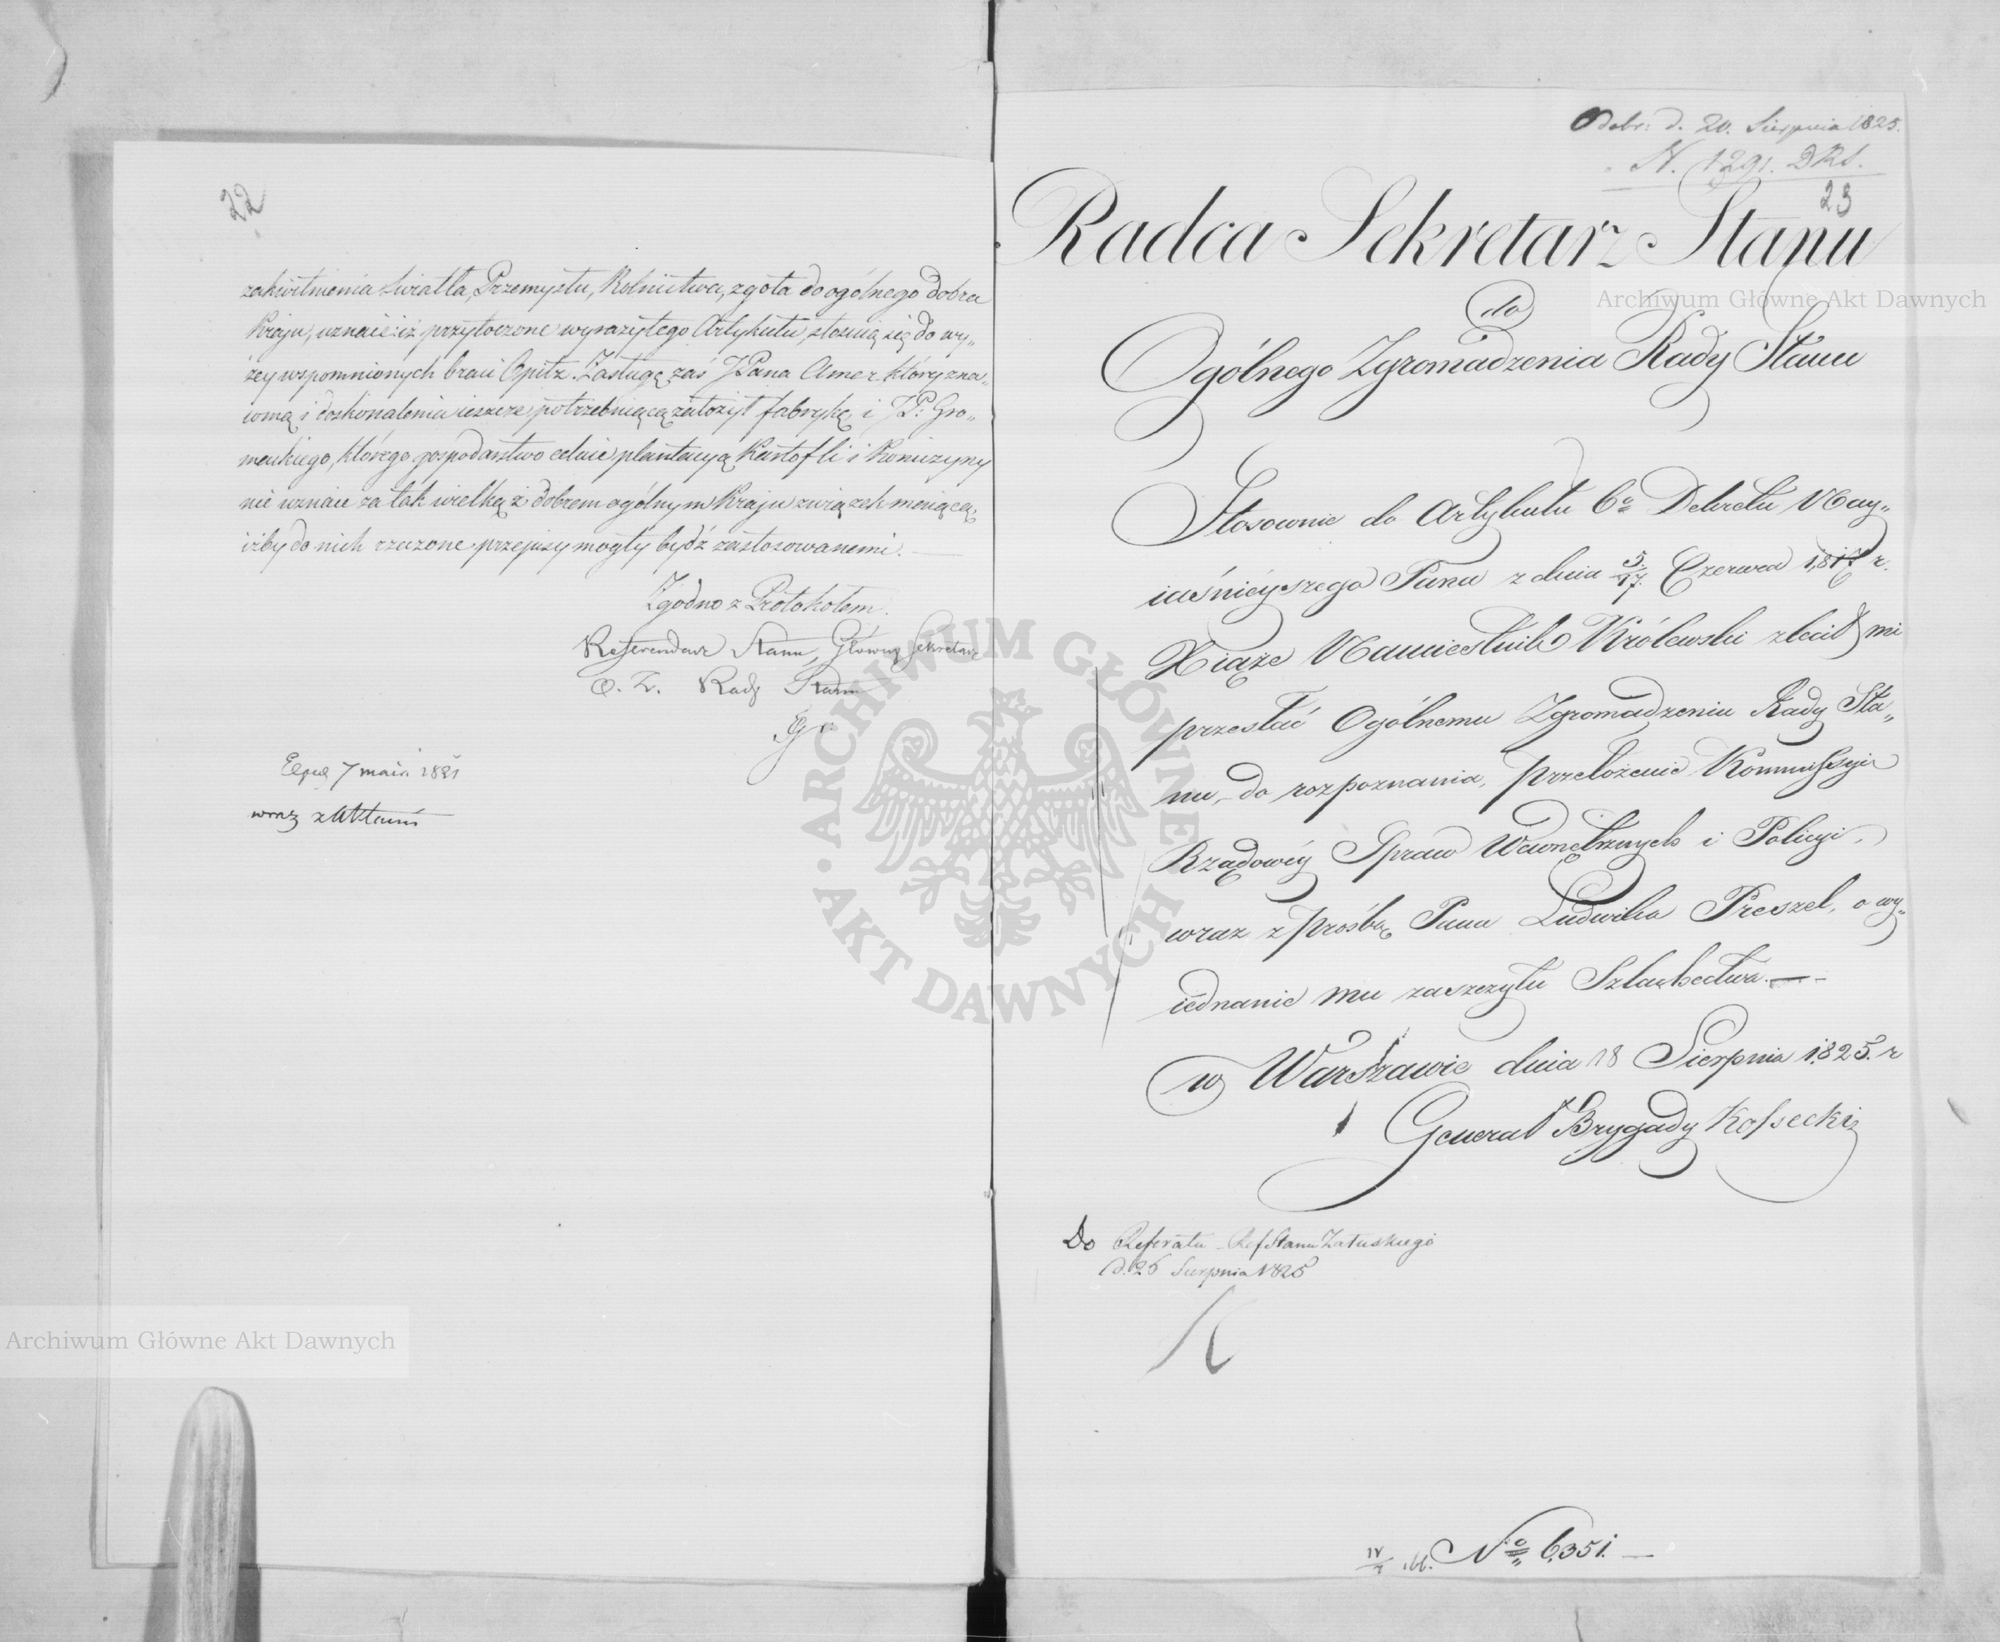 22
zakwitnienia światła, Przemysłu, Rolnictwa, zgoła do ogólnego dobra
Kraju, uznaie iż przytoczone wyrazy tego Artykułu, stosuią się do wy„
żey wspomnionych braci Opitz. Zasługę zaś JPana Amer który zna„
iomą i doskonalenia ieszcze potrzebuiącą założył fabrykę, i JP: Gro„
mackiego, którego gospodarstwo celuie plantacyą Kartofli i Koniczyny
nie uznaie za tak wielką z dobrem ogólnym Kraju związek maiącą,
iżby do nich rzeczone przepisy mogły bydź zastosowanemi.
Zgodno z Protokołem.
Referendarz Stanu, Główny Sekretarz
O. Z. Rady Stanu
Exped 7 maia 1821
wraz z Aktami
Odebr: d. 20. Sierpnia 1825.
N. 1291. DRS.
23
Radca Sekretarz Stanu
do
Ogólnego Zgromadzenia Rady Stanu
Stosownie do Artykułu 6o Dekretu Nay„
iaśnieyszego Pana z dnia 5/17. Czerwca 1817 r.
Xiąże Namiestnik Królewski zlecił mi
przesłać Ogólnemu Zgromadzeniu Rady Sta„
nu, do rozpoznania, przełożenie Kommissyi
Rządowéy Spraw Wewnętrznych i Policyi,
wraz z prośbą Pana Ludwika Preszel, o wy„
iednanie mu zaszczytu Szlachectwa. —
w Warszawie dnia 18 Sierpnia 1825. r
Generał Brygady Kossecki
Do Referatu Ref Stanu Załuskiego
d. 26 Sierpnia 1825
No 6351.
Archiwum Główne Akt Dawnych
Archiwum Główne Akt Dawnych
ARCHIWUM GŁÓWNE • AKT DAWNYCH •